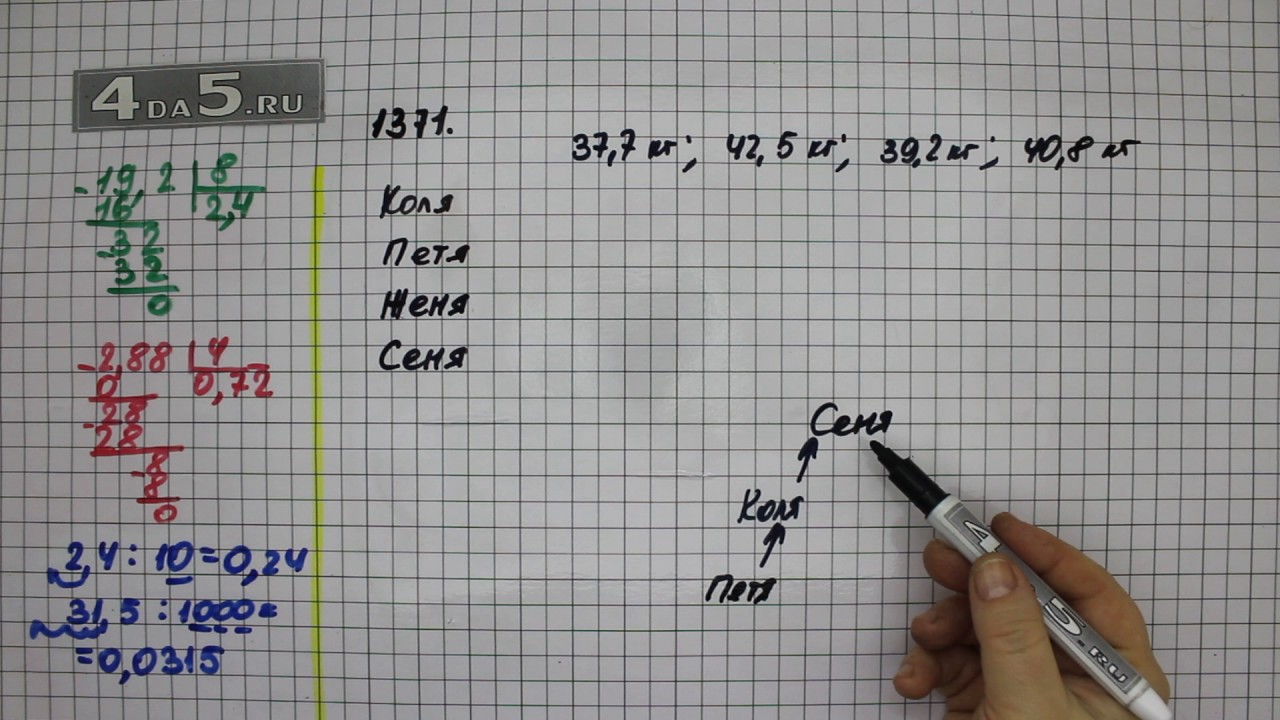 4DA5.RU
1371.
37,7 кг; 42,5 кг; 39,2 кг; 40,8 кг
Коля
Петя
Женя
Сеня
-19,2 | 8
16 | 2,4
-32
32
0
-2,88 | 4
0 | 0,72
-28
28
-8
8
0
2,4 : 10 = 0,24
31,5 : 1000 =
= 0,0315
Сеня
Коля
Петя
4 5.RU